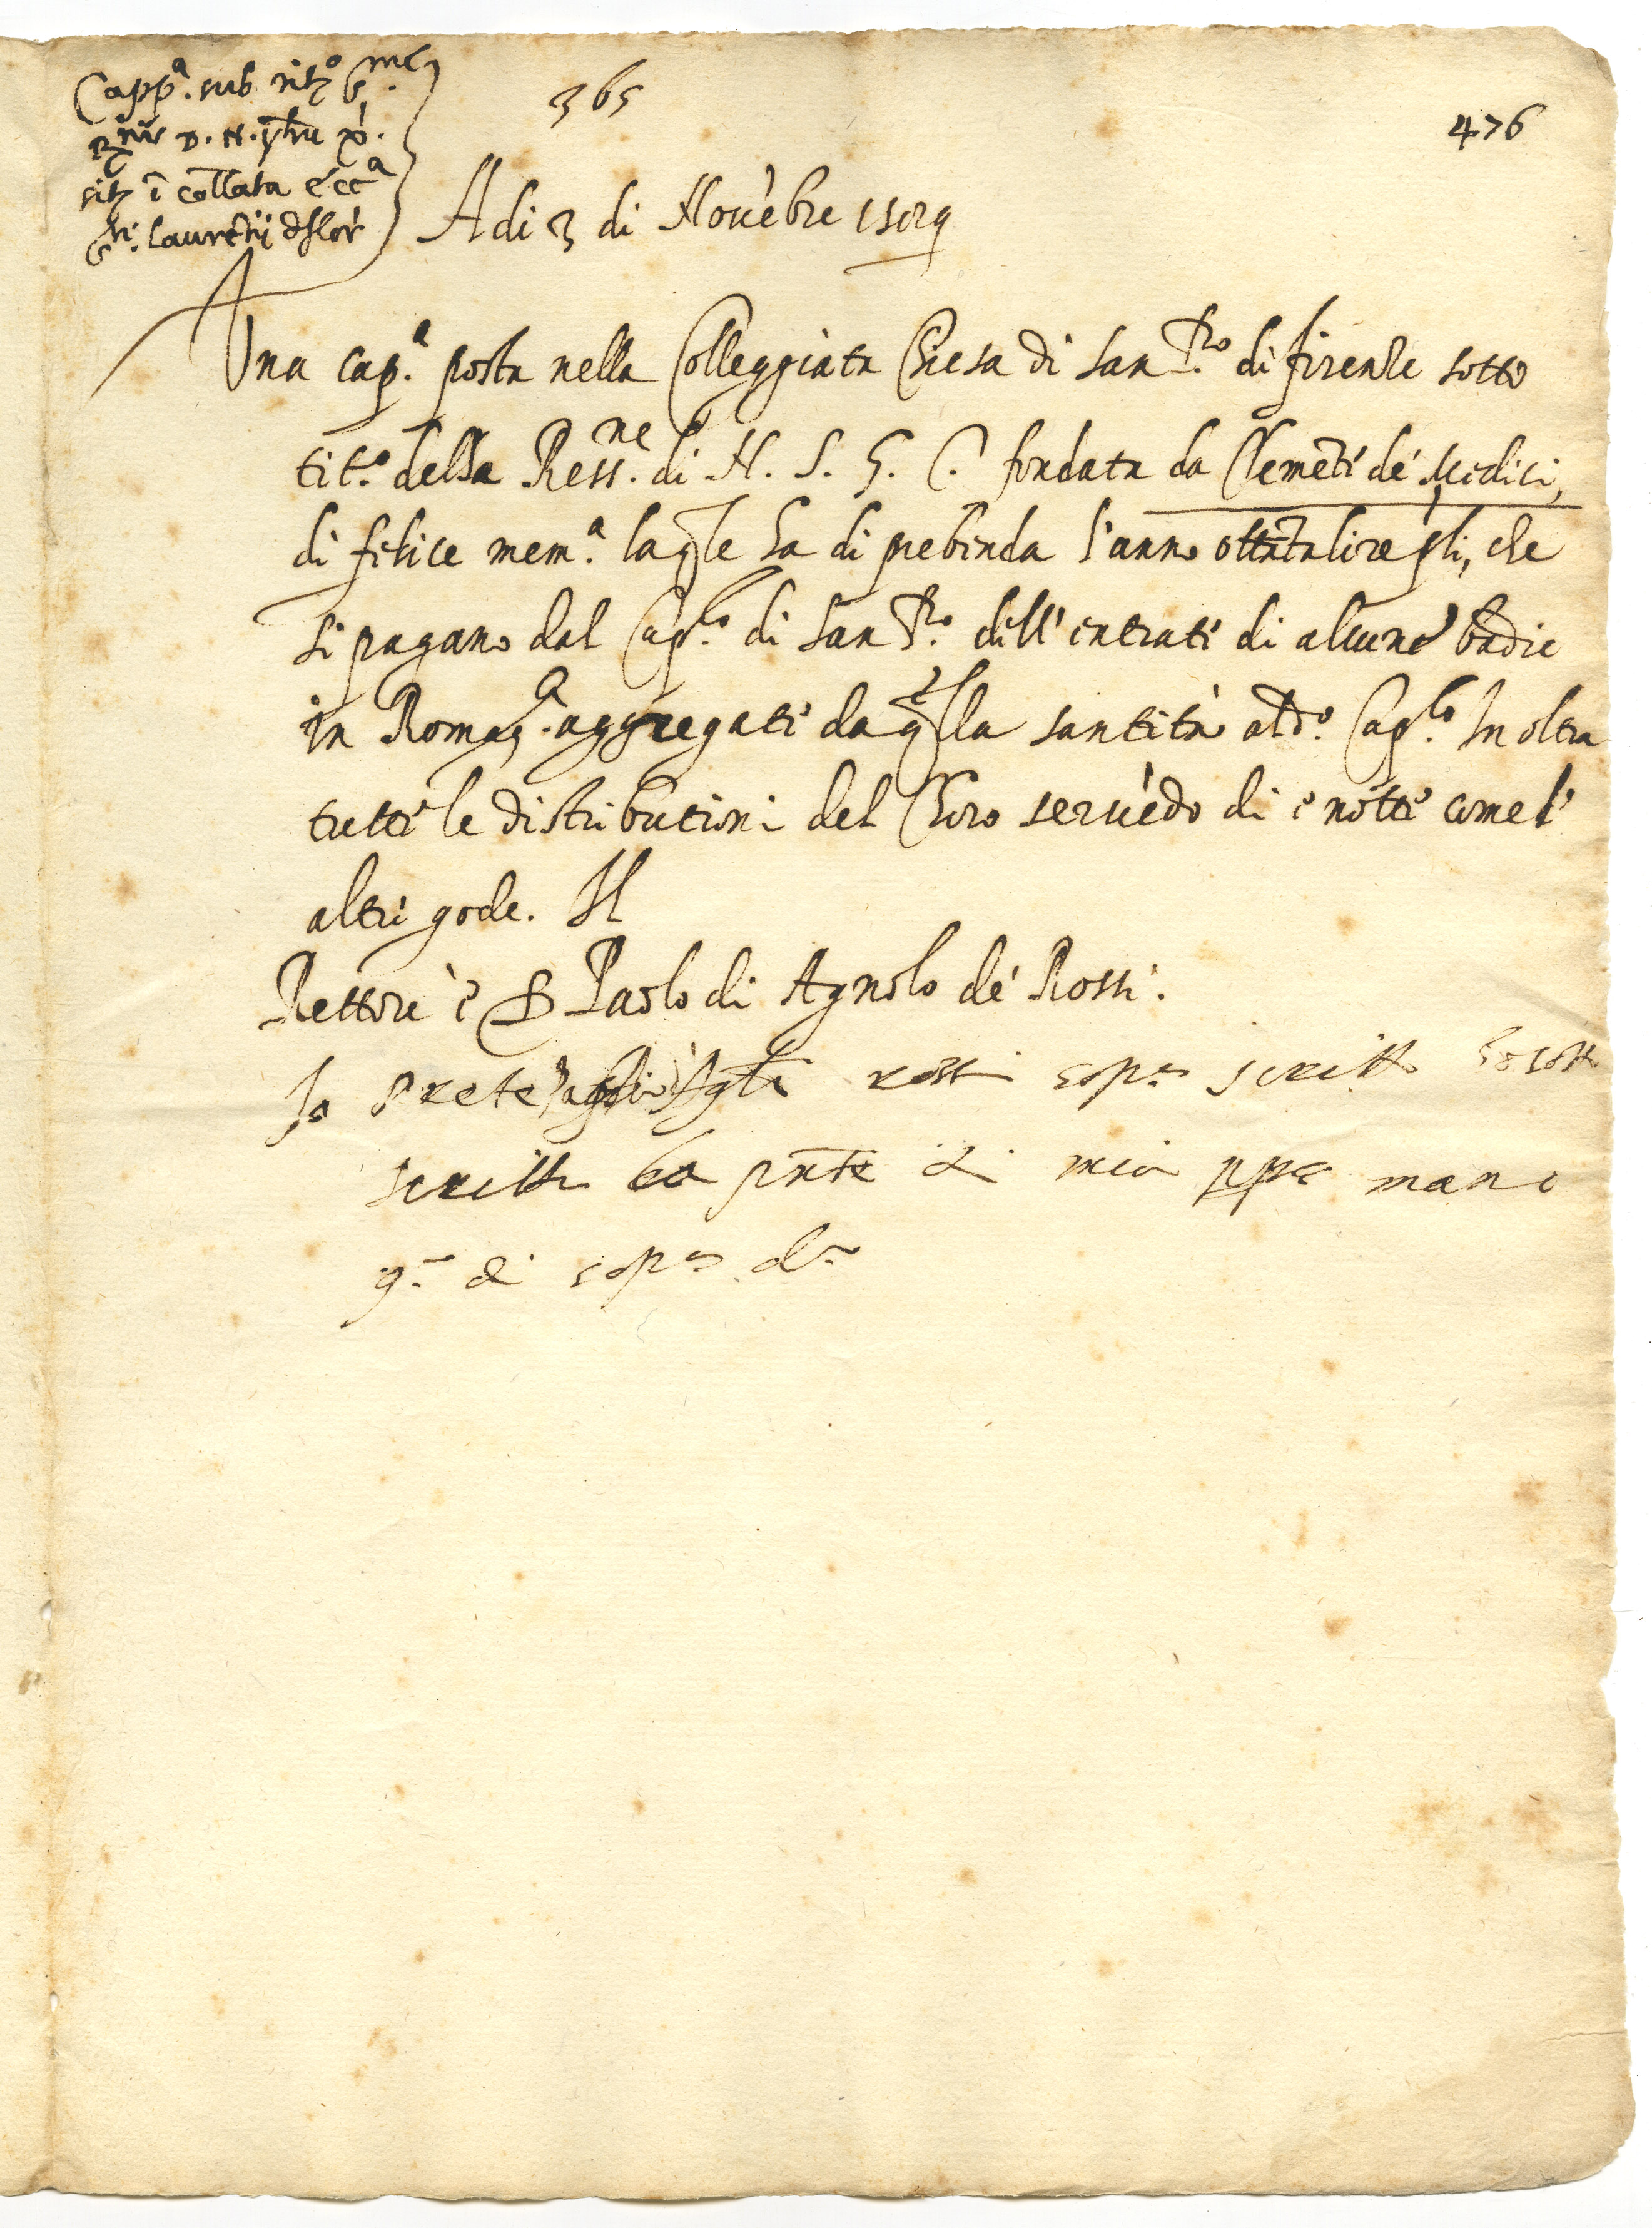 Capp.ª sub tit.º S.me
R.nis D. N. yhu x̄p̄i.
sit. ī collata ecc.ª
S.ti laurētij d flor.
365
476
A di 3 di Novēbre
Una cap.ª posta nella Collegginta Chiesa di San L.zo di firenze sotto
tit.º della Ress.ne di N. S. G. C. fondata da Clemēte de' Medici,
di felice mem.ª laqle ha di prebenda l'anno ottāta lire pli, che
si pagano dal Cap.lo di San L.zo dell'entrate di alcune badie
in Romag.ª aggregate da qlla santità al d.º Cap.lo In oltra
tutte le distributioni del Choro servēdo di e notte come l'
altri gode. Il
Rettore è S Paolo di Agnolo de' Rossi.
Io prete rossi sop.ª scritto ho sotto
scritto la pn̄te di mia pp.ª mano
q.º di sop.ª d.º